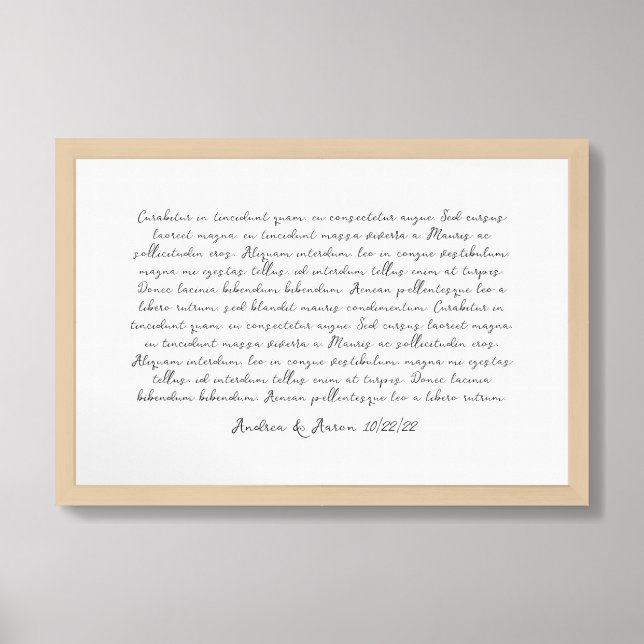 Curabitur in tincidunt quam, eu consectetur augue. Sed cursus
laoreet magna, eu tincidunt massa viverra a. Mauris ac
sollicitudin eros. Aliquam interdum, leo in congue vestibulum,
magna mi egestas tellus, id interdum tellus enim at turpis.
Donec lacinia bibendum bibendum. Aenean pellentesque leo a
libero rutrum, sed blandit mauris condimentum. Curabitur in
tincidunt quam, eu consectetur augue. Sed cursus laoreet magna,
eu tincidunt massa viverra a Mauris ac sollicitudin eros.
Aliquam interdum, leo in congue vestibulum, magna mi egestas
tellus, id interdum tellus enim at turpis. Donec lacinia
bibendum bibendum. Aenean pellentesque leo a libero rutrum.
Andrea & Aaron 10/22/22